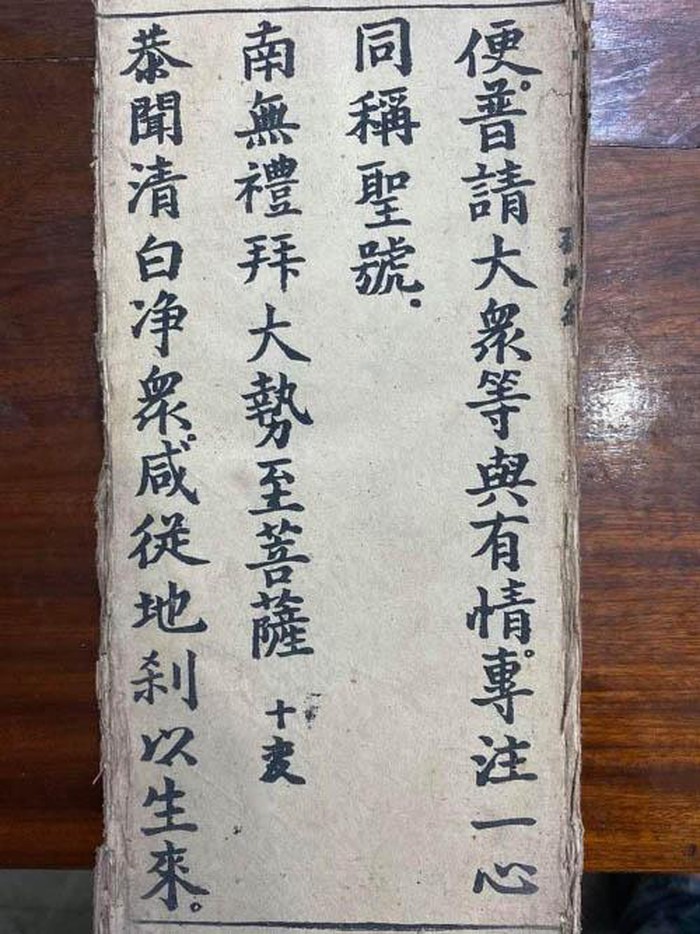 便。普請大衆等與有情。專注一心
同稱聖號。
南無禮拜大勢至菩薩 十
恭聞清白净衆。咸從地刹以生來。